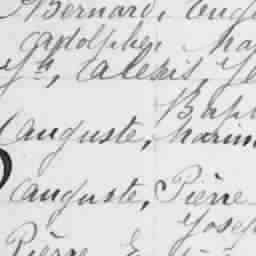 Bernard, Eug
adolphe, Ma
Jh, alexis, Je
Bap
auguste, Marin
auguste, Pière
Josep
Pièrre